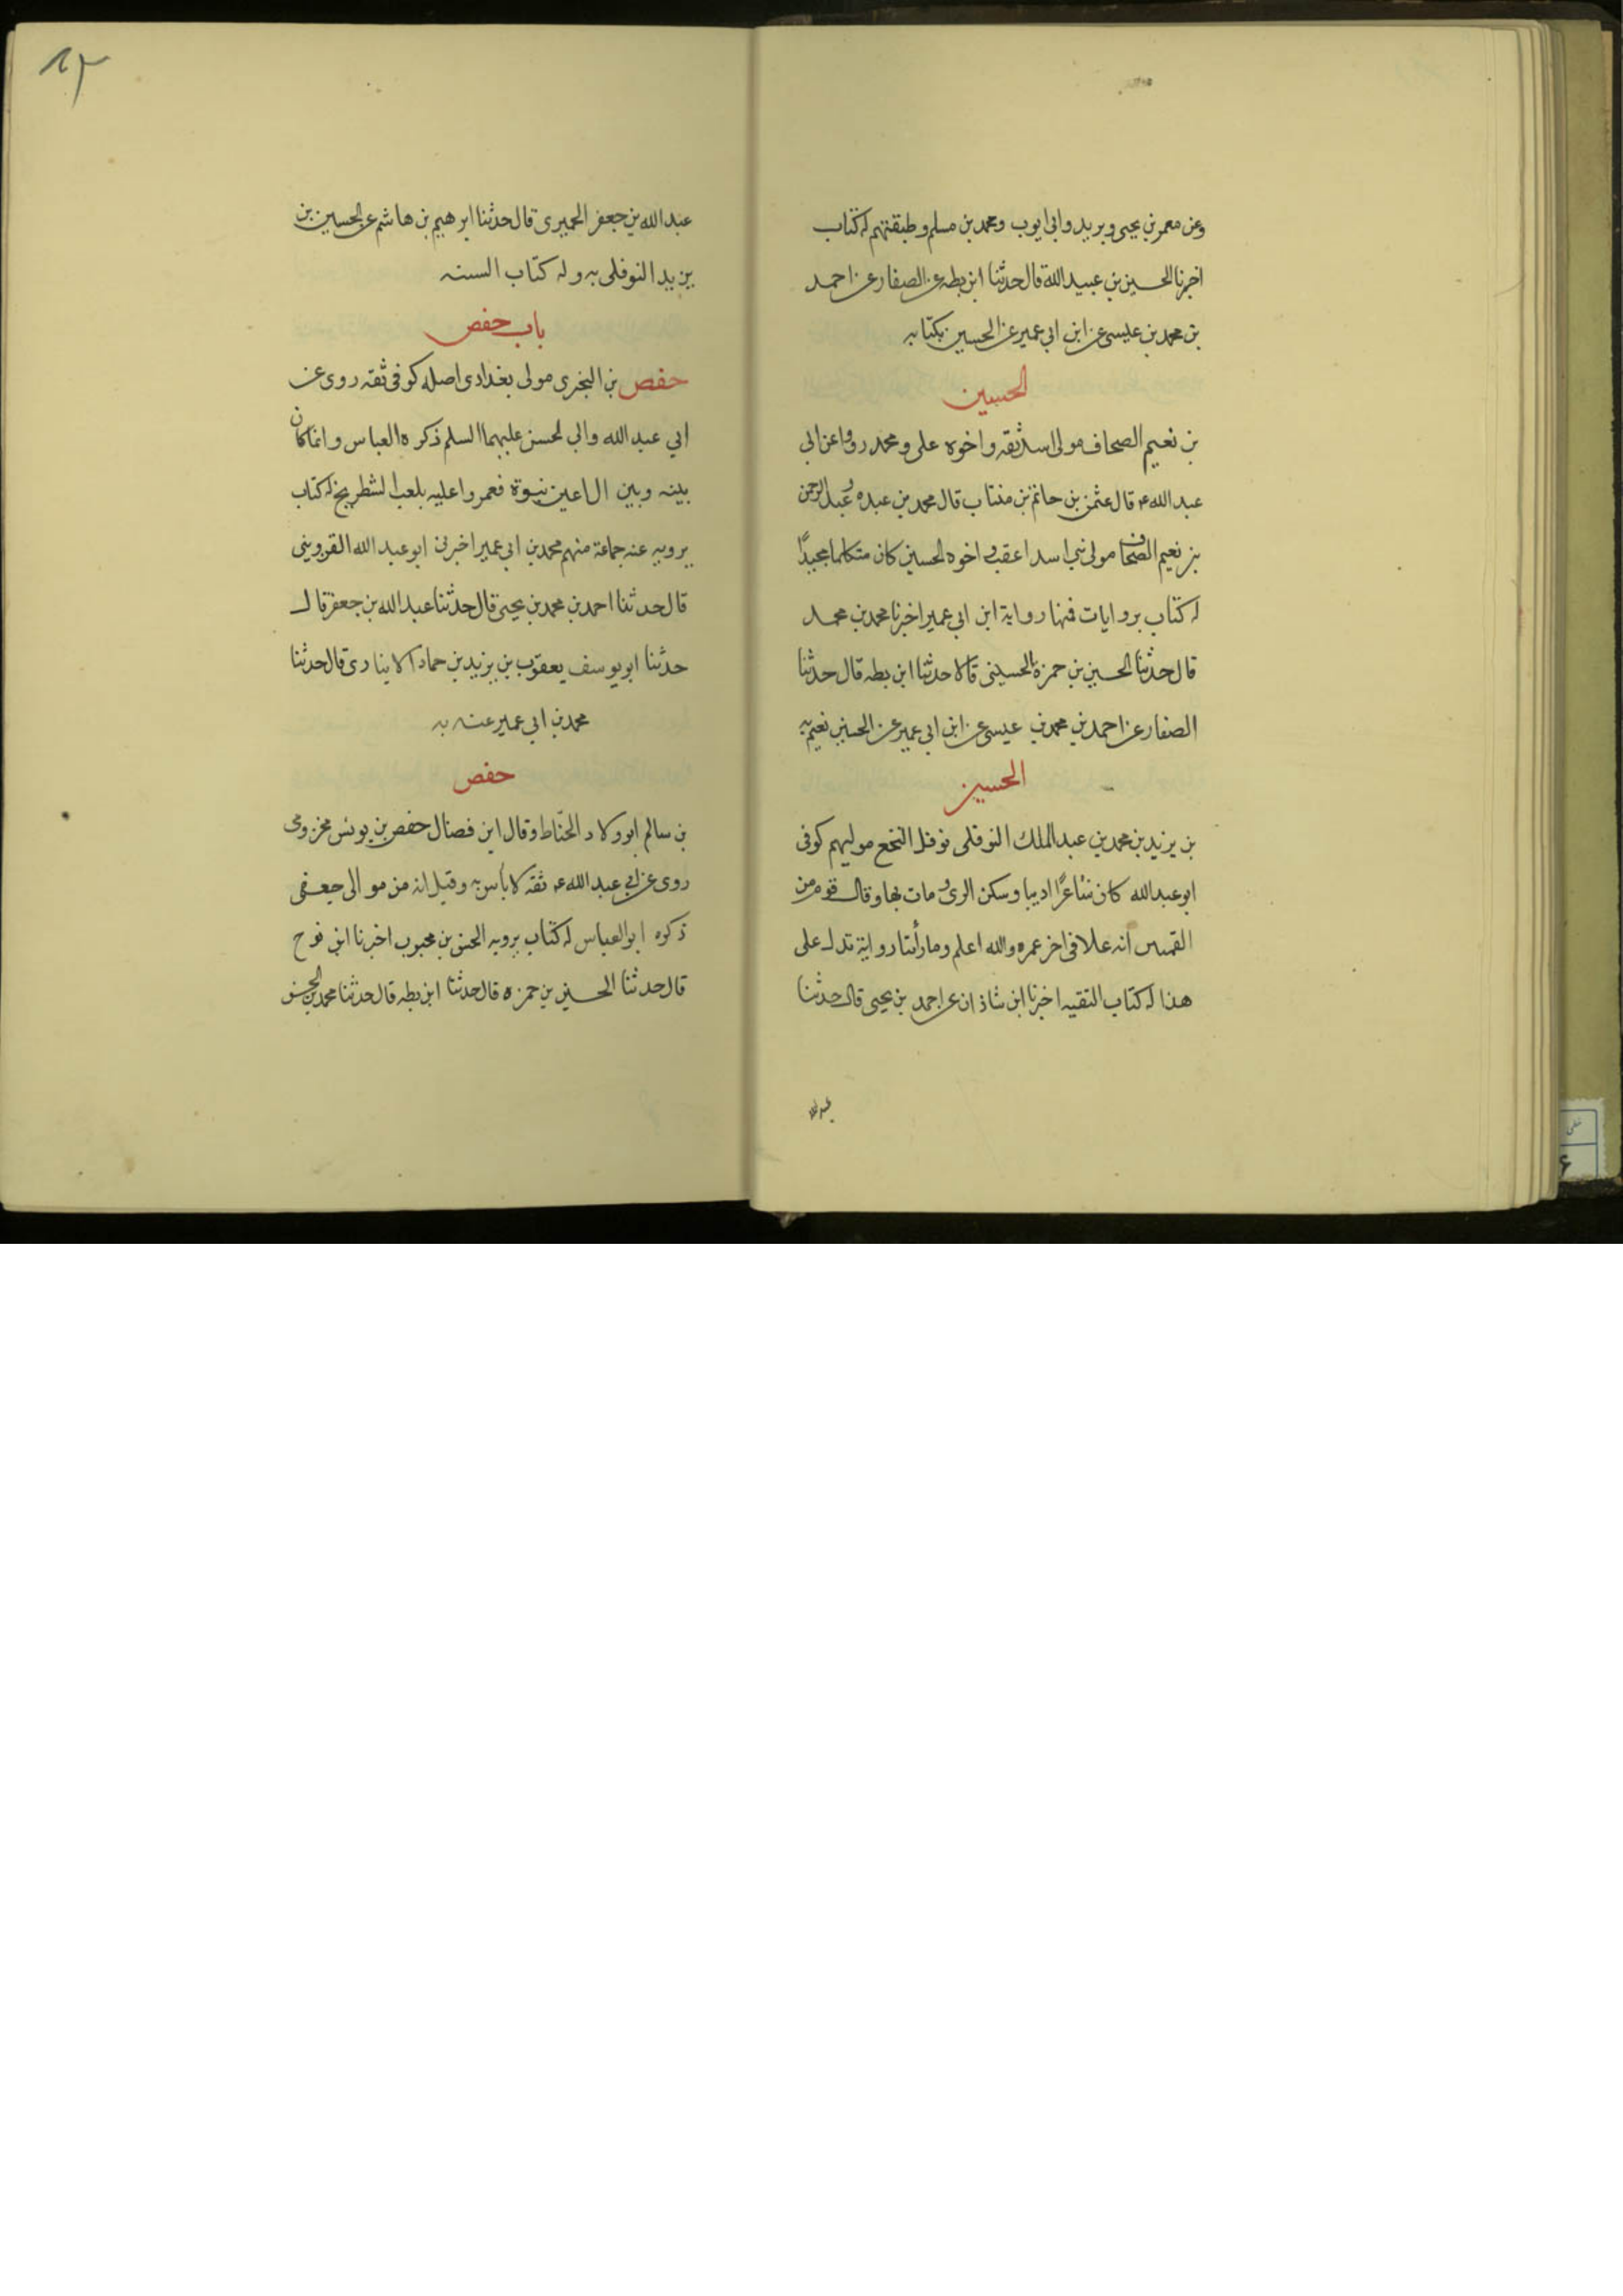 وعن معمر بن يحيى وبريد وابى ايوب ومحمد بن مسلم وطبقتهم له كتاب
اخبرنا الحسين بن عبيد الله قال حدثنا ابن بطه عن الصفار عن احمد
بن محمد بن عيسى عن ابن ابي عمير عن الحسين بكتابه
الحسين
بن نعيم الصحاف مولى اسد ثقه واخوه على ومحمد رووا عن ابى
عبد الله ع قال عثمن بن حاتم بن منتاب قال محمد بن عبده وعبد الرحمن
بن نعيم الصحاف مولى بنى اسد اعقب واخوه الحسين كان متكلما مجيدًا
له كتاب بروايات فمنها رواية ابن ابي عمير اخبرنا محمد بن محمد
قال حدثنا الحسين بن حمزة الحسينى قالا حدثنا ابن بطه قال حدثنا
الصفار عن احمد بن محمد بن عيسى عن ابن ابي عمير عن الحسين نعيم به
الحسين
بن يزيد بن محمد بن عبد الملك النوفلى نوفل النخع موليهم كوفى
ابو عبد الله كان شاعرًا اديبا وسكن الرى ومات بها وقال قوم من
القميين انه علا فى اخر عمره والله اعلم وما رأينا رواية تدل على
هذا له كتاب التقيه اخبرنا ابن شاذان عن احمد بن يحيى قال حدثنا
عبد الله
١٣
عبد الله بن جعفر الحميرى قال حدثنا ابرهيم بن هاشم عن الحسين بن
يزيد النوفلى به وله كتاب السنه
باب حفص
حفص بن البخرى مولى بغدادى اصله كوفى ثقه روى عن
ابي عبد الله وابى الحسن عليهما السلم ذكره العباس وانما كان
بينه وبين ال اعين نبوة فعمروا عليه بلعب الشطرنج له كتاب
يرويه عنه جماعة منهم محمد بن ابى عمير اخبرنى ابو عبد الله القزوينى
قال حدثنا احمد بن محمد بن يحيى قال حدثنا عبد الله بن جعفر قال
حدثنا ابو يوسف يعقوب بن يزيد بن حماد الانبارى قال حدثنا
محمد بن ابي عمير عنه به
حفص
بن سالم ابو ولاد الحنّاط وقال ابن فضال حفص بن يونس مخزومى
روى عن ابى عبد الله ع ثقه لا بأس به وقيل انه من موالى جعفى
ذكره ابو العباس له كتاب يرويه الحسن بن محبوب اخبرنا ابن نوح
قال حدثنا الحسين بن حمزه قال حدثنا ابن بطه قال حدثنا محمد بن الحسن